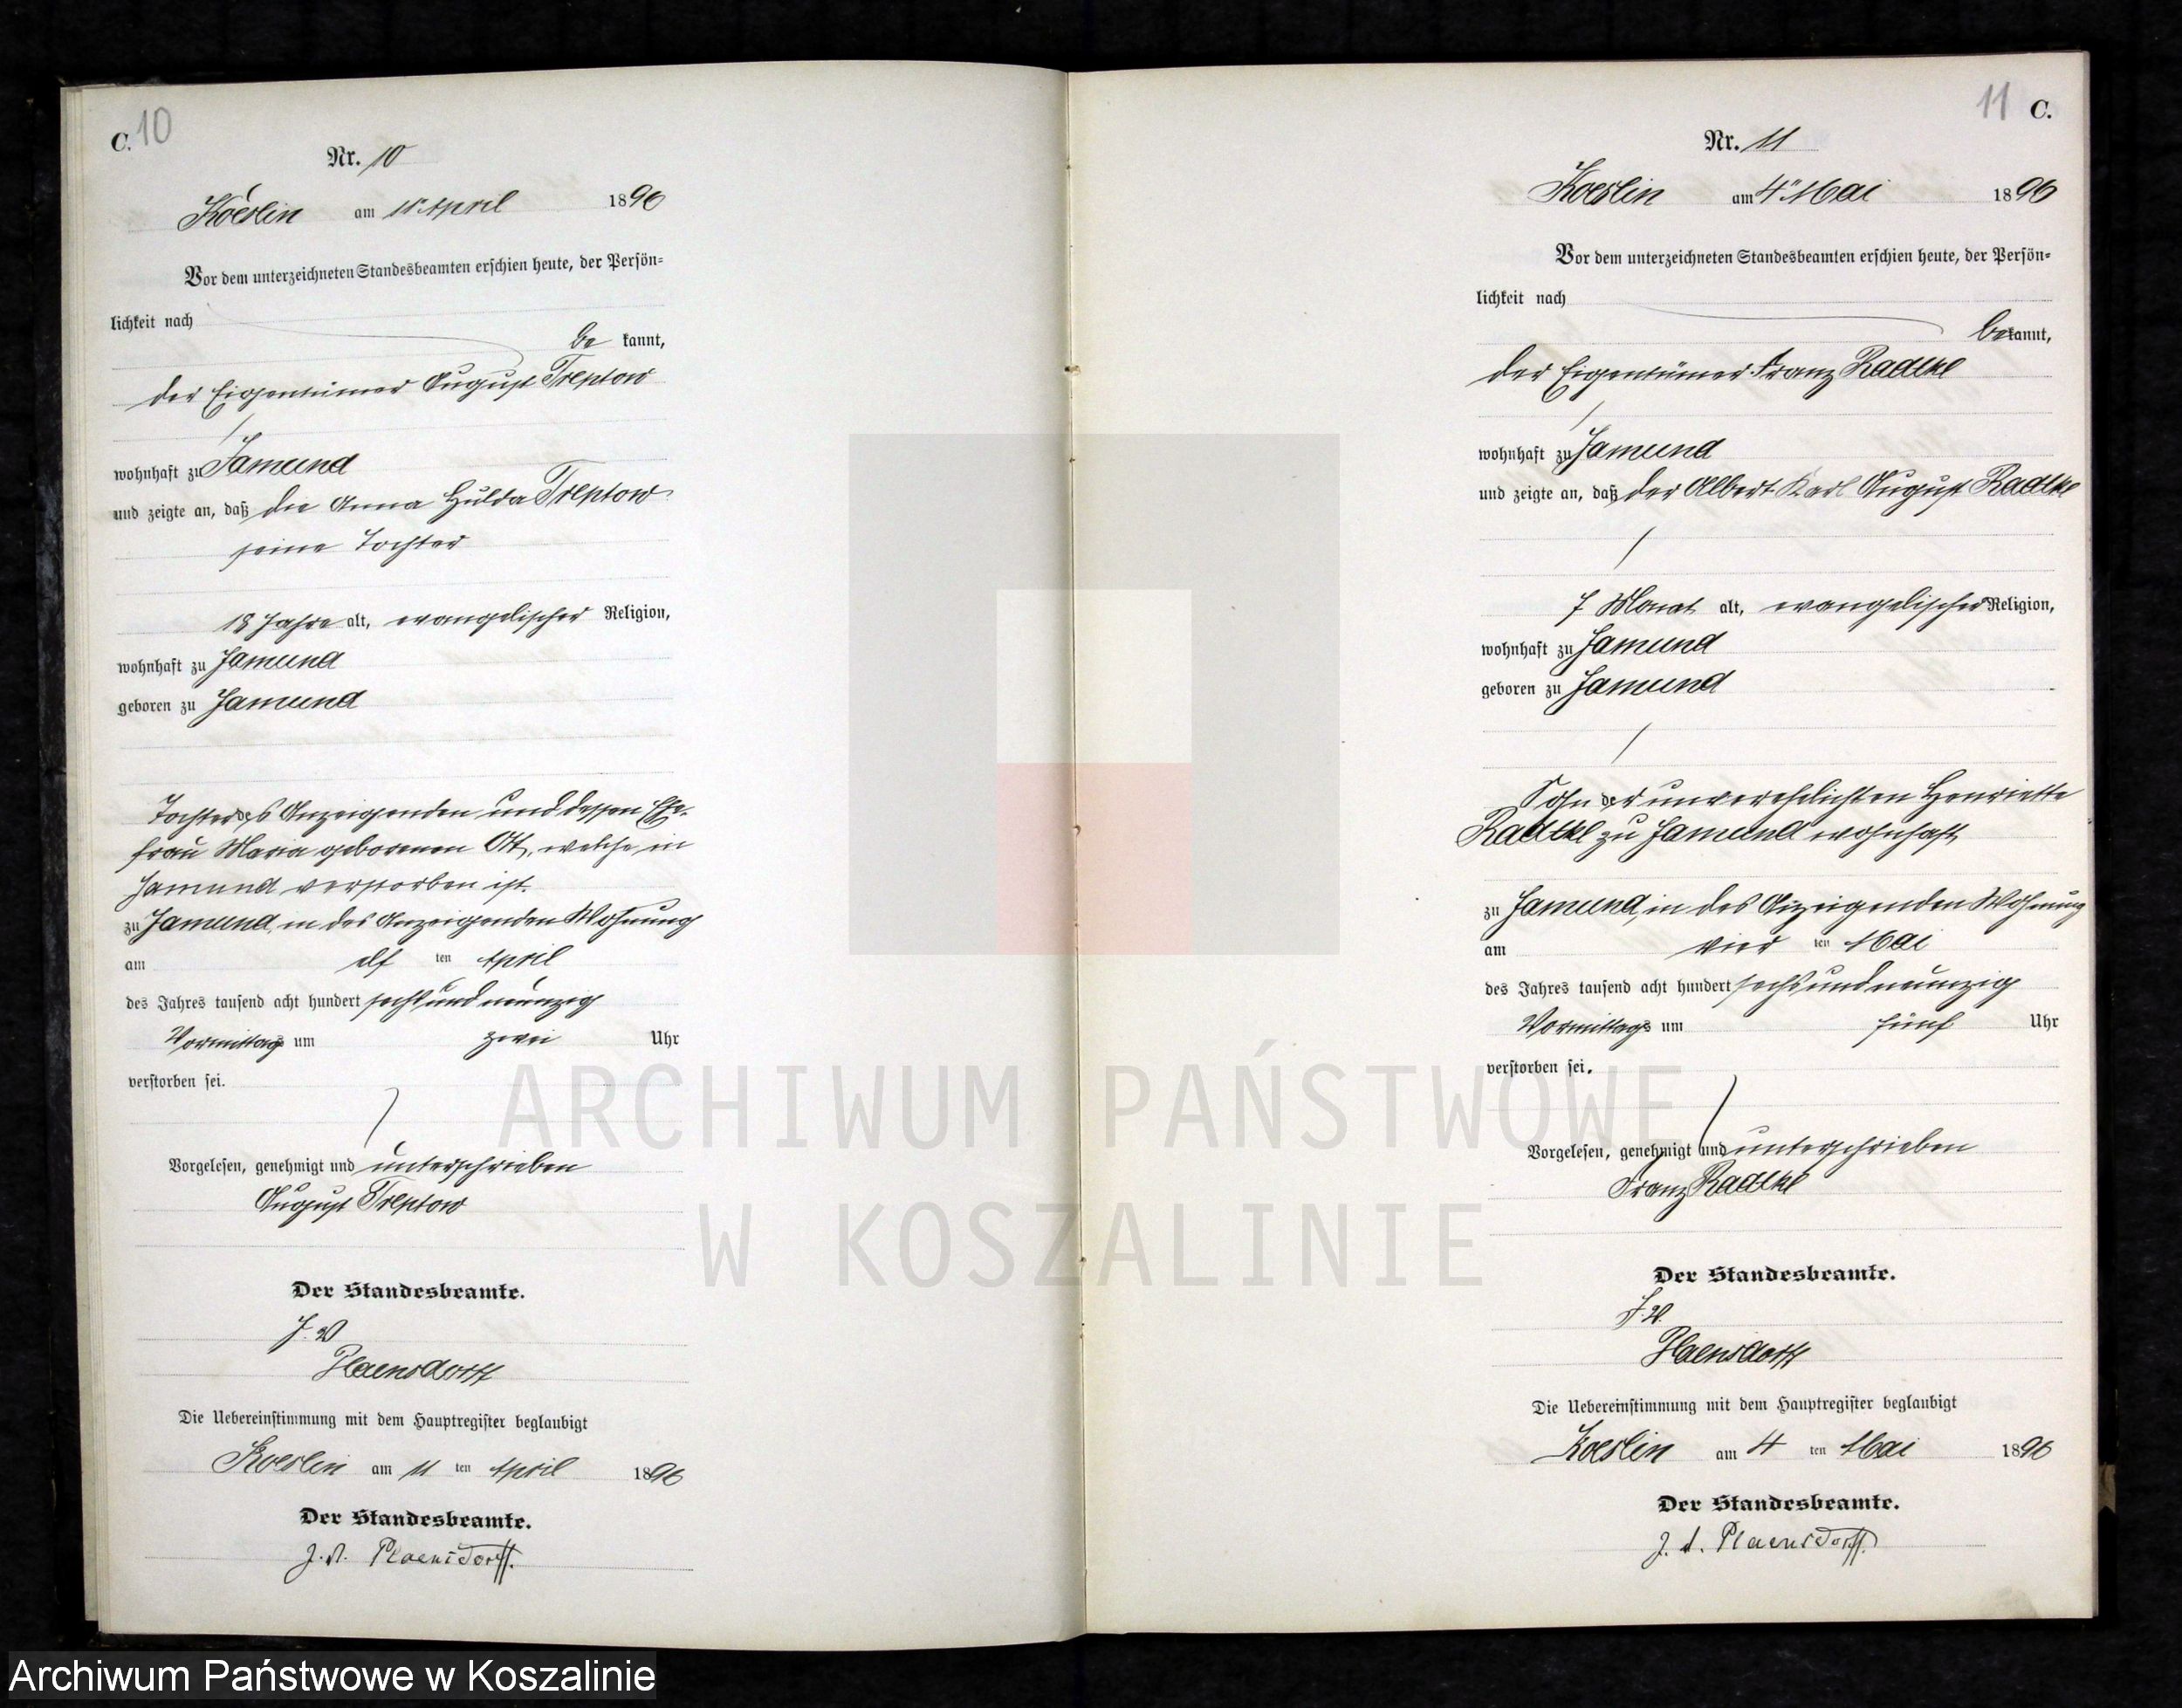 C. 10
Nr. 10
Köeslin am 11t April 1896
Vor dem unterzeichneten Standesbeamten erschien heute, der Persön-
lichkeit nach
be kannt,
der Eigentümer August Treptow
wohnhaft zu Jamund
und zeigte an, daß die Anna Hulda Treptow
seine Tochter
18 Jahre alt, evangelischer Religion,
wohnhaft zu Jamund
geboren zu Jamund
Tochter des Anzeigenden und dessen Ehe-
frau Maria geborenen Ott, welche in
Jamund verstorben ist.
zu Jamund, in des Anzeigenden Wohnung
am elf ten April
des Jahres tausend acht hundert sechs und neunzig
Vormittags um zwei Uhr
verstorben sei.
Vorgelesen, genehmigt und unterschrieben
August Treptow
Der Standesbeamte.
J. V
Plaensdorff
Die Uebereinstimmung mit dem Hauptregister beglaubigt
Koeslin am 11 ten April 1896
Der Standesbeamte.
J. V. Plaensdorff.
11 C.
Nr. 11
Koeslin am 4t Mai 1896
Vor dem unterzeichneten Standesbeamten erschien heute, der Persön-
lichkeit nach
bekannt,
der Eigentümer Franz Radtke
wohnhaft zu Jamund
und zeigte an, daß der Albert Karl August Radtke
7 Monat alt, evangelischer Religion,
wohnhaft zu Jamund
geboren zu Jamund
Sohn der unverehelichten Henriette
Radtke zu Jamund wohnhaft
zu Jamund, in des Anzeigenden Wohnung
am vier ten Mai
des Jahres tausend acht hundert sechs und neunzig
Vormittags um fünf Uhr
verstorben sei.
Vorgelesen, genehmigt und unterschrieben
Franz Radtke
Der Standesbeamte.
J. V.
Plaensdorff
Die Uebereinstimmung mit dem Hauptregister beglaubigt
Koeslin am 4 ten Mai 1896
Der Standesbeamte.
J. V. Plaensdorff.
ARCHIWUM PAŃSTWOWE
W KOSZALINIE
Archiwum Państwowe w Koszalinie